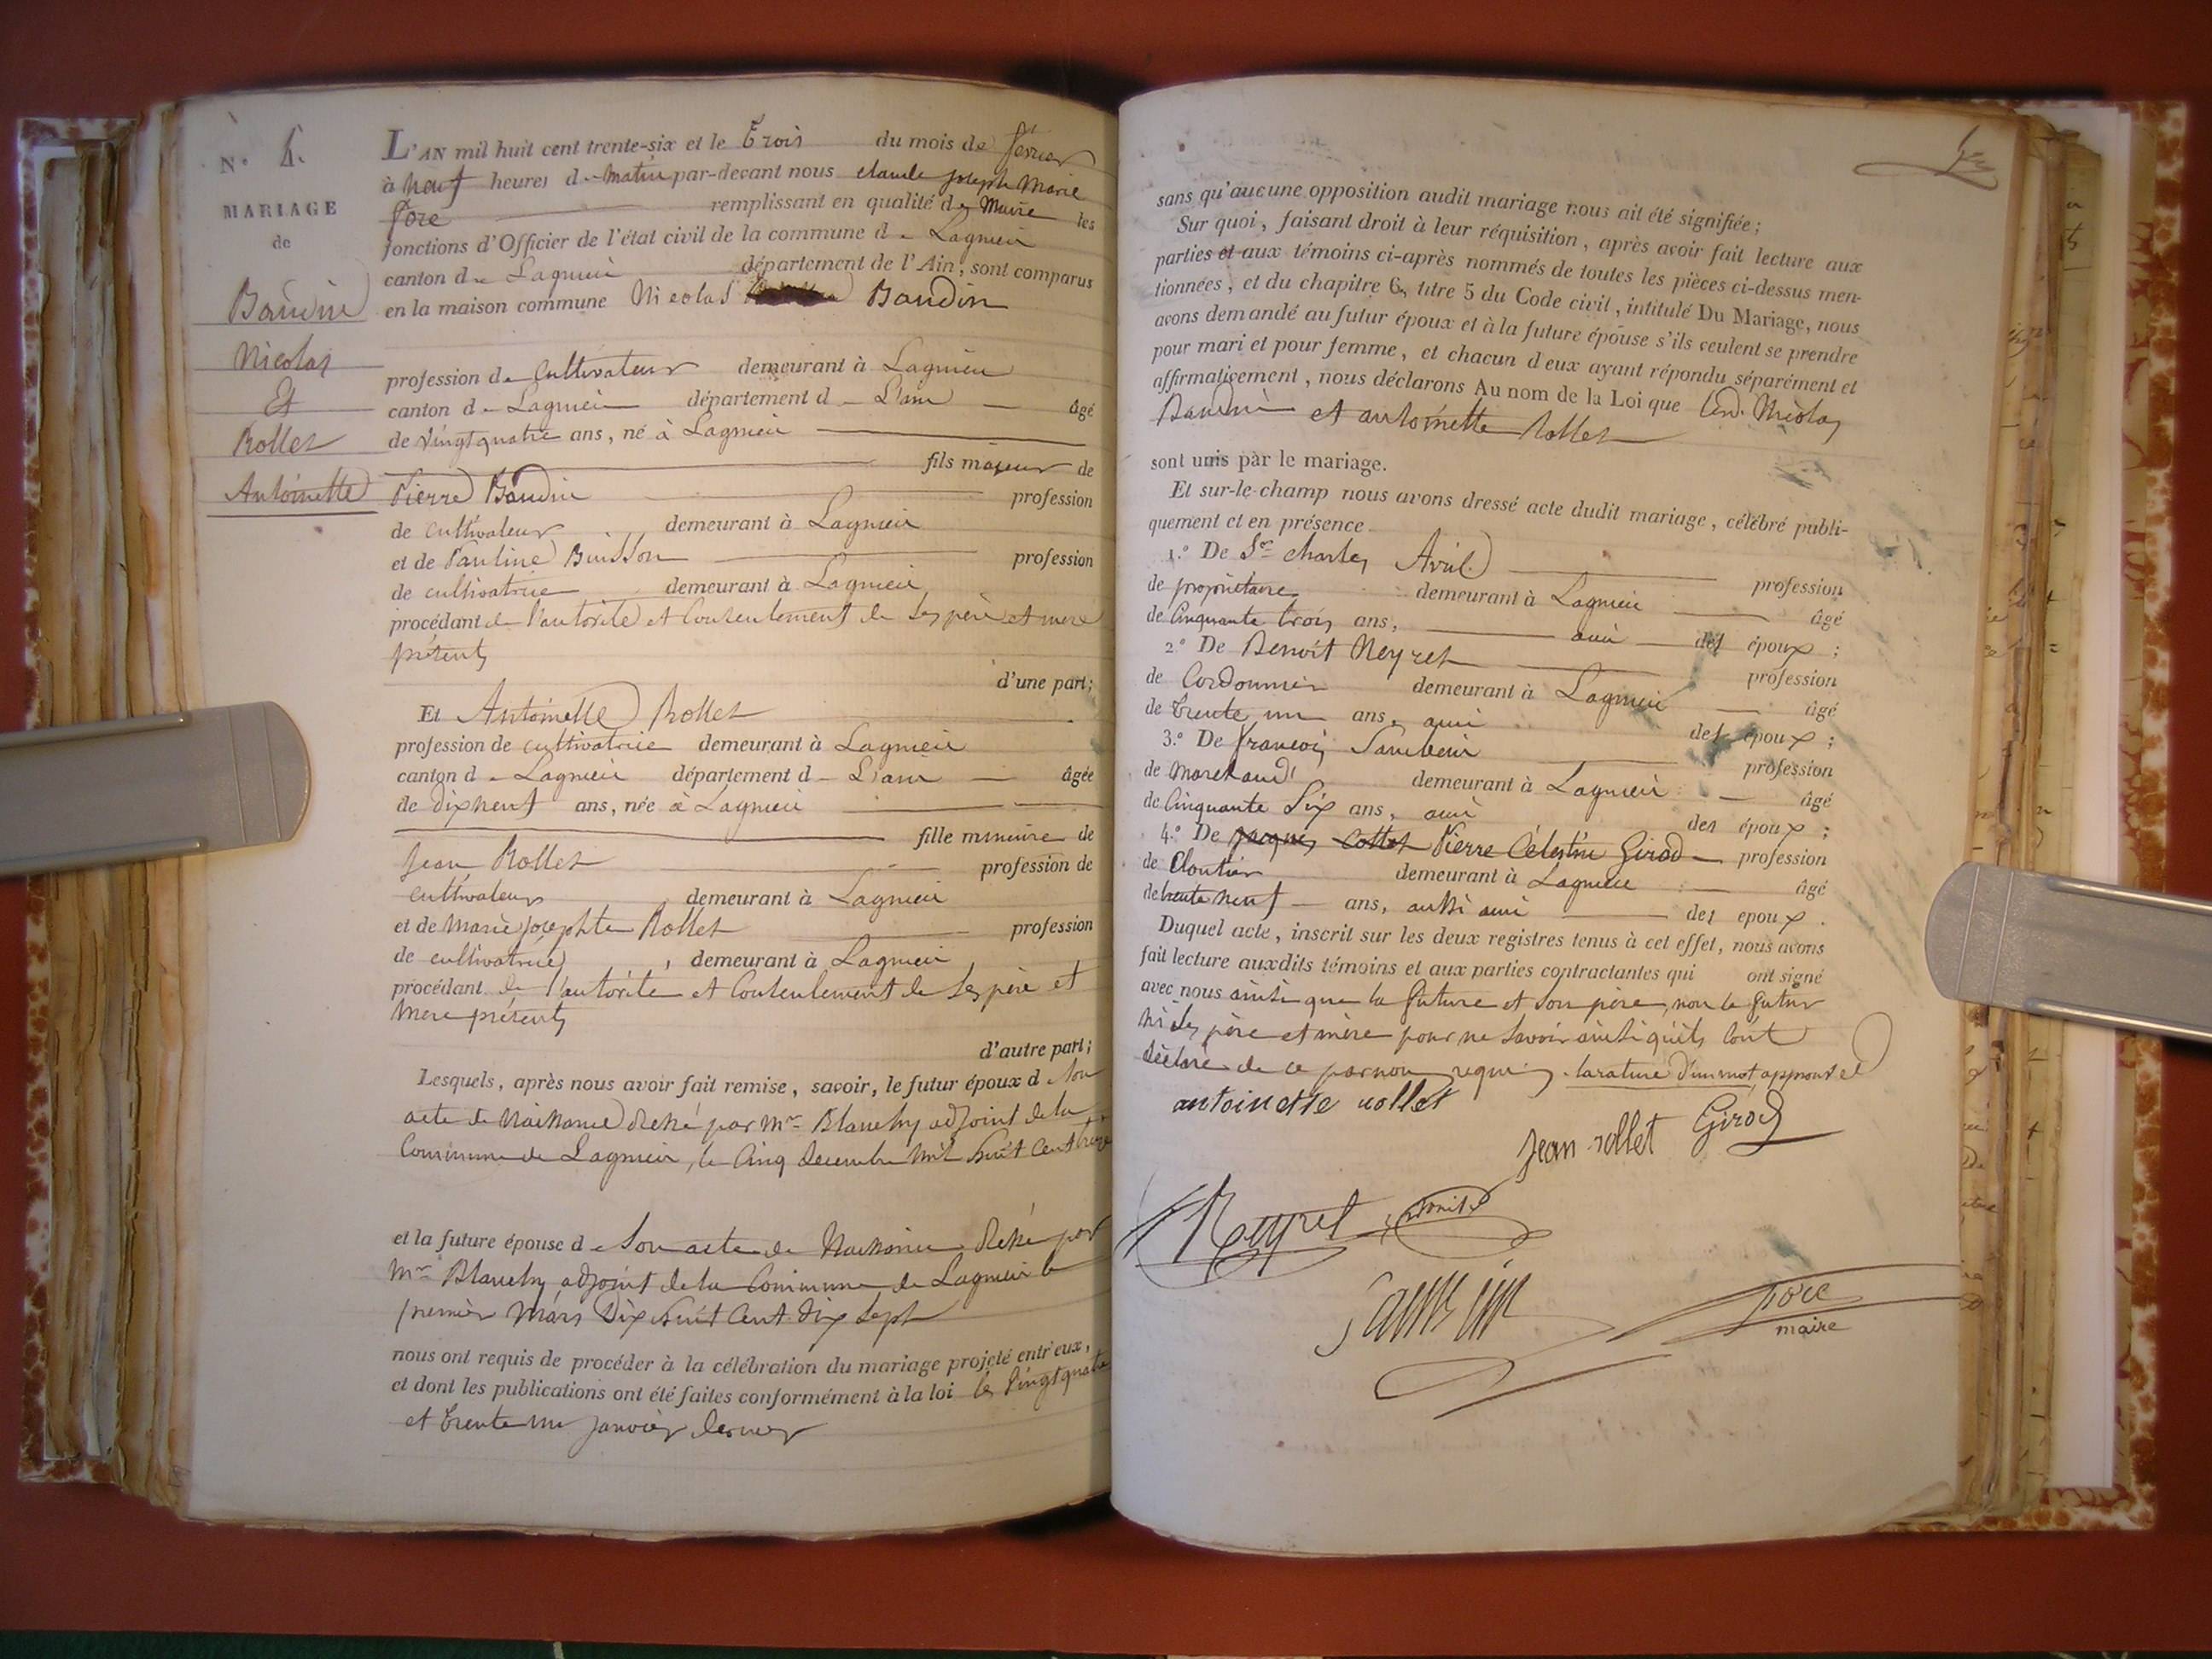 N.o 4.
MARIAGE
de
Baudin
Nicolas
Et
Rollet
Antoinette
L'AN mil huit cent trente-six et le trois du mois de février
à neuf heures d u matin par-devant nous claude joseph Marie
fore remplissant en qualité de Maire les
fonctions d'Officier de l'état civil de la commune d e Lagnieu
canton d e Lagnieu département de l'Ain, sont comparus
en la maison commune Nicolas Baudin
profession de Cultivateur demeurant à Lagnieu
canton d e Lagnieu département d e L'ain âgé
de vingtquatre ans, né à Lagnieu
fils majeur de
Pierre Baudin profession
de cultivateur demeurant à Lagnieu
et de Pauline Buisson profession
de cultivatrice demeurant à Lagnieu
procédant de l'autorité et Consentement de ses père et mere
présents
d'une part;
Et Antoinette Rollet
profession de cultivatrice demeurant à Lagnieu
canton d e Lagnieu département d e L'ain âgée
de dixneuf ans, née à Lagnieu
fille mineure de
Jean Rollet profession de
cultivateur demeurant à Lagnieu
et de Marie josephte Rollet profession
de cultivatrice, demeurant à Lagnieu
procédant de l'autorité et Consentement de ses père et
Mere présents
d'autre part;
Lesquels, après nous avoir fait remise, savoir, le futur époux d e son
acte de Naissance dressé par Mr Blanchy adjoint de la
Commune de Lagnieu, le Cinq decembre Mil huit Cent
et la future épouse d e Son acte de Naissance dressé par
Mr Blanchy adjoint de la Commune de Lagnieu le
premier Mars Dix huit Cent dix Sept
nous ont requis de procéder à la célébration du mariage projeté entr'eux,
et dont les publications ont été faites conformément à la loi les vingtquatre
et trente un janvier dernier
sans qu'aucune opposition audit mariage nous ait été signifiée;
Sur quoi, faisant droit à leur réquisition, après avoir fait lecture aux
parties et aux témoins ci-après nommés de toutes les pièces ci-dessus men-
tionnées, et du chapitre 6, titre 5 du Code civil, intitulé Du Mariage, nous
avons demandé au futur époux et à la future épouse s'ils veulent se prendre
pour mari et pour femme, et chacun d'eux ayant répondu séparément et
affirmativement, nous déclarons Au nom de la Loi que Nicolas
Baudin et antoinette Rollet
sont unis par le mariage.
Et sur-le-champ nous avons dressé acte dudit mariage, célébré publi-
quement et en présence
1.o De Sr Charles Avril profession
de propriétaire demeurant à Lagnieu âgé
de Cinquante trois ans, ami des époux;
2.o De Benoit Neyret profession
de Cordonnier demeurant à Lagnieu âgé
de trente un ans, ami des époux;
3.o De françois profession
de Marchand demeurant à Lagnieu âgé
de Cinquante Six ans, ami des époux;
4.o De Jacques Collet Pierre Célestin Girod profession
de Cloutier demeurant à Lagnieu âgé
de trente neuf ans, aussi ami des epoux.
Duquel acte, inscrit sur les deux registres tenus à cet effet, nous avons
fait lecture auxdits témoins et aux parties contractantes qui ont signé
avec nous ainsi que la future et son père, non le futur
ni ses père et mère pour ne Savoir ainsi qu'ils l'ont
déclaré de ce par nous requis. la rature d'un mot approuvée
antoinette rollet
jean rollet Girod
Neyret
fore
maire